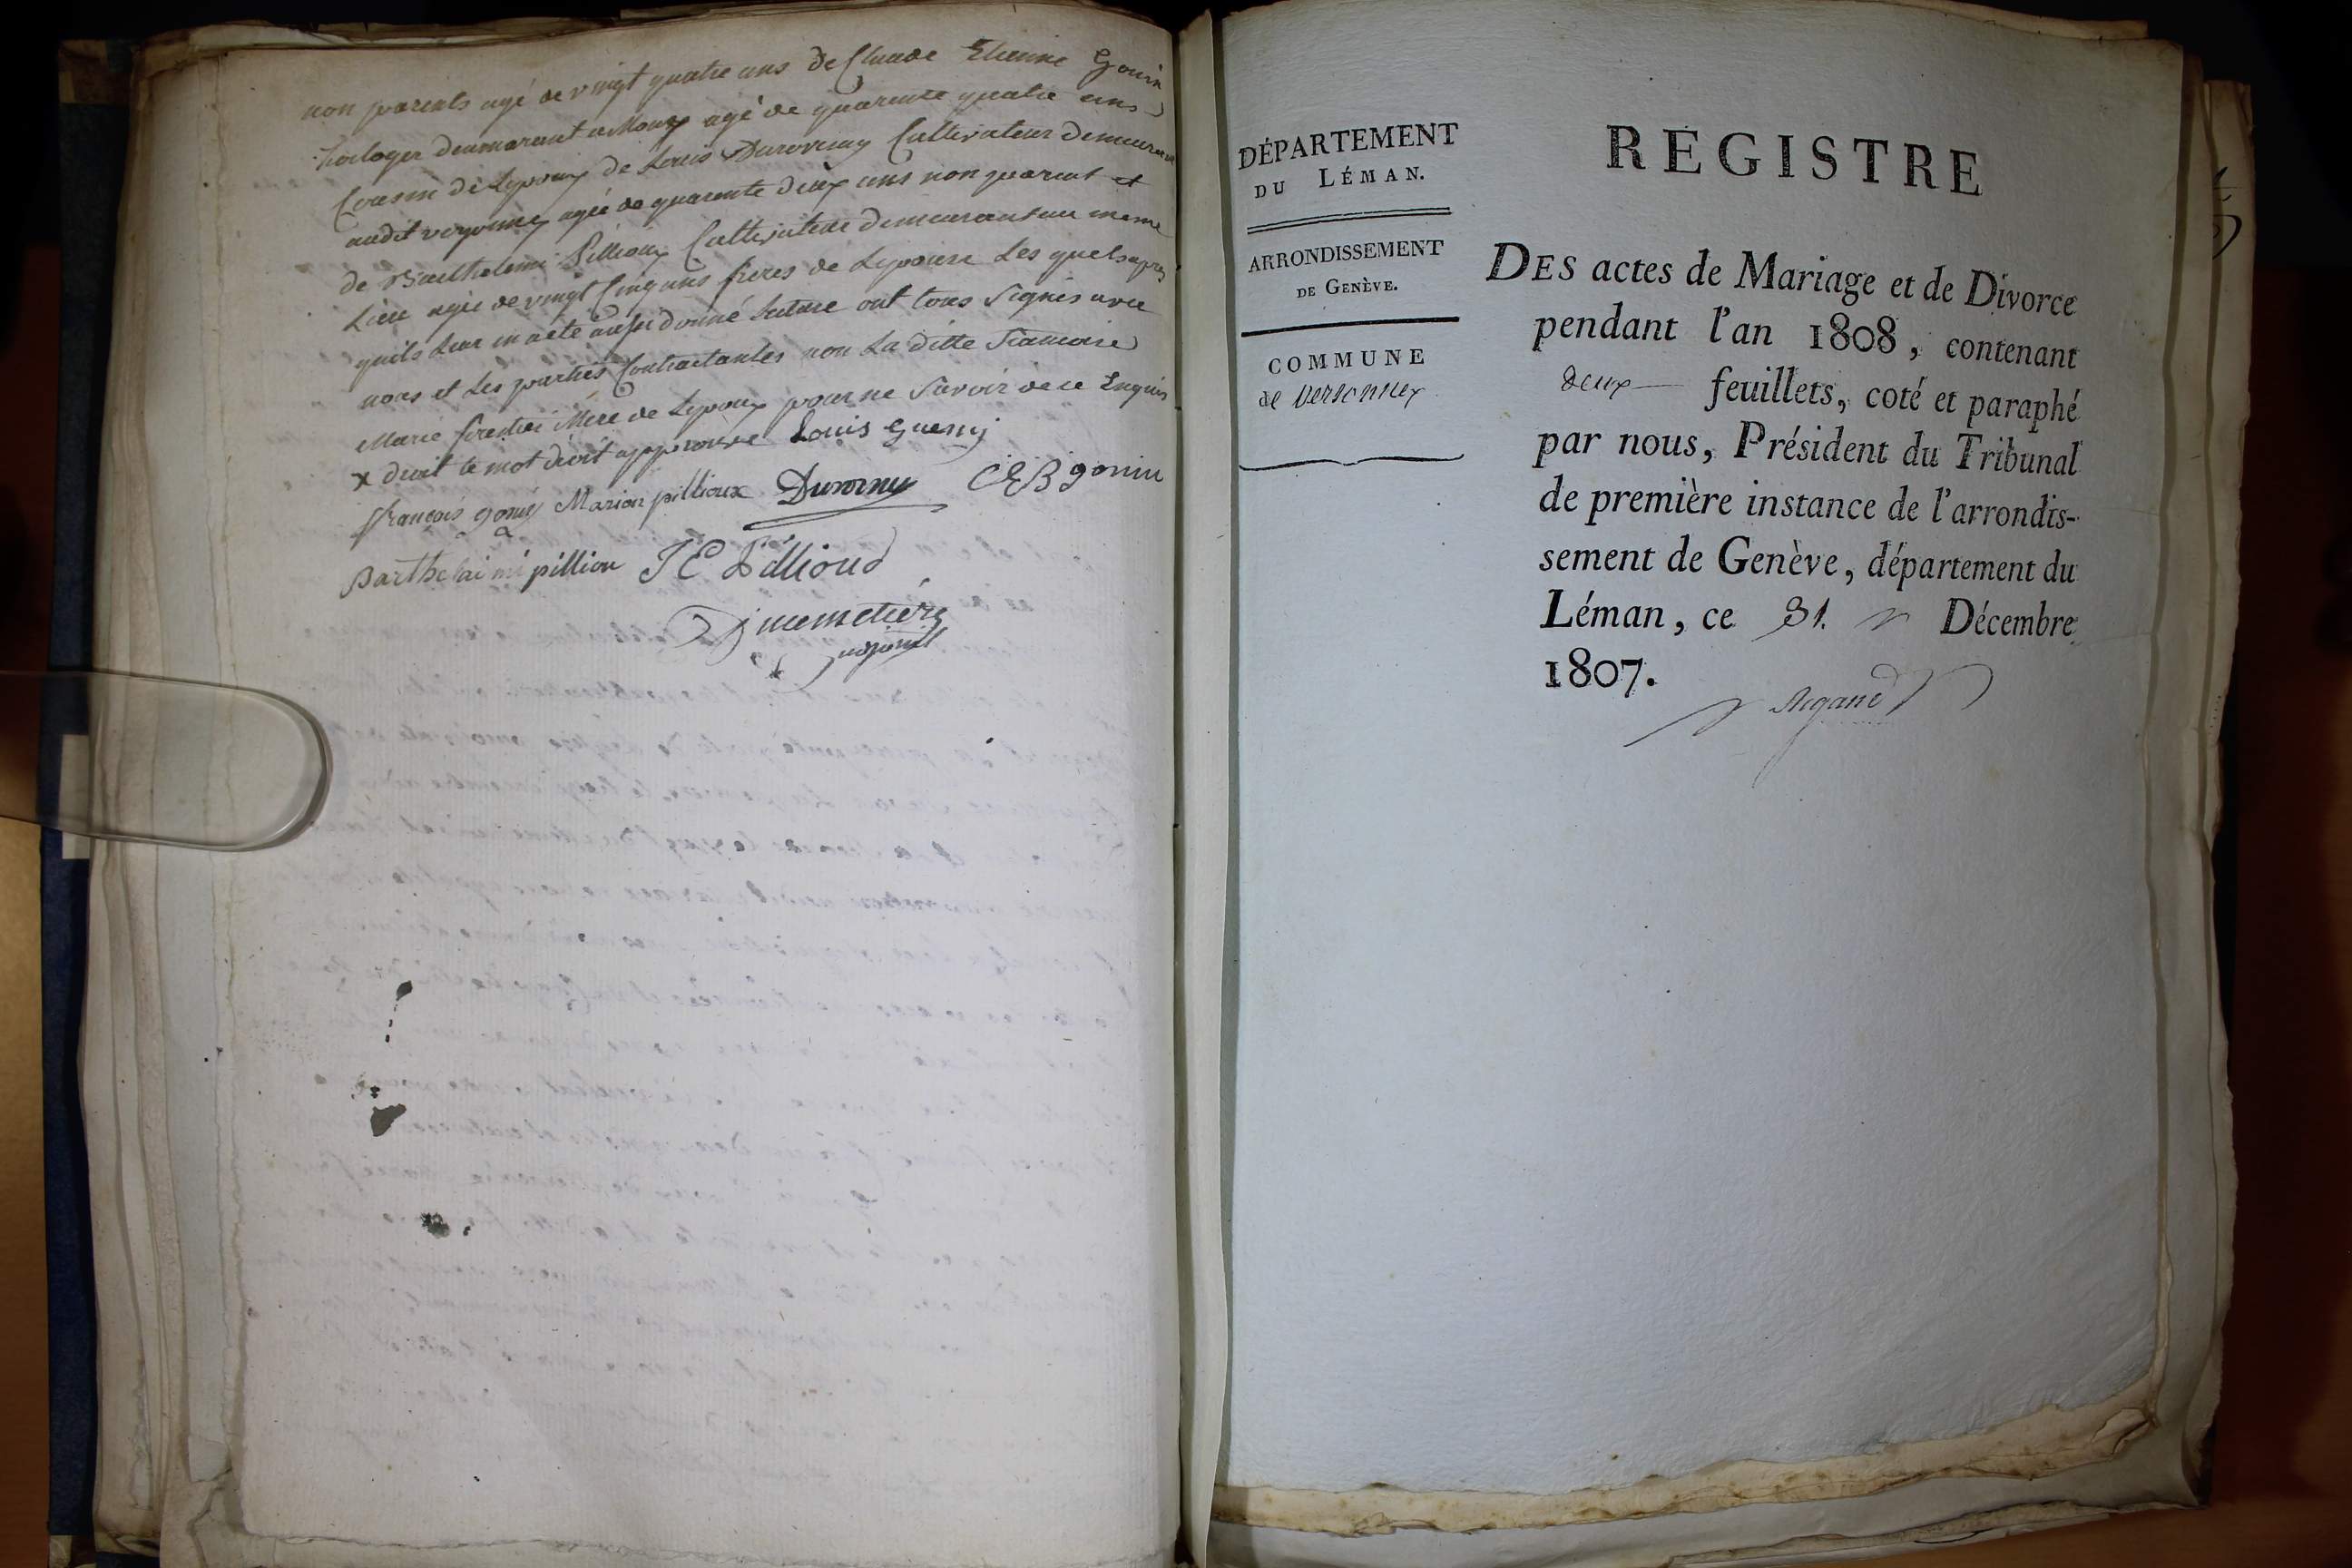 non parents agé de vingt quatre ans de Claude Etienne Gonin
horloger demeurant a Mourex agé de quarente quatre ans
Cousin de Lepoux de Louis Duroveray Cultivateur demeurant
audit vesonnex agée de quarente deux ans non parent et
de Barthelemi Pillioux Cultivateur demeurant au meme
Lieu agée de vingt Cinq ans freres de Lepouse Les quels apres
quils Leur en aete aussi donné Lecture ont tous Signés avec
nous et Les parties Contractantes non La ditte
Marie mere de Lepoux pour ne Savoir de ce Enquis
x droit le mot droit approuvée Louis Guemj
françois gonij Marion pillioux Duroveray C E B gonin
Barthelaimi pillion J E Pillioud
adjoint
DÉPARTEMENT
DU LÉMAN.
ARRONDISSEMENT
DE GENÈVE.
COMMUNE
de Versonnex
REGISTRE
DES actes de Mariage et de Divorce
pendant l'an 1808, contenant
deux feuillets, coté et paraphé
par nous, Président du Tribunal
de première instance de l'arrondis-
sement de Genève, département du
Léman, ce 31. Décembre
1807.
Argand